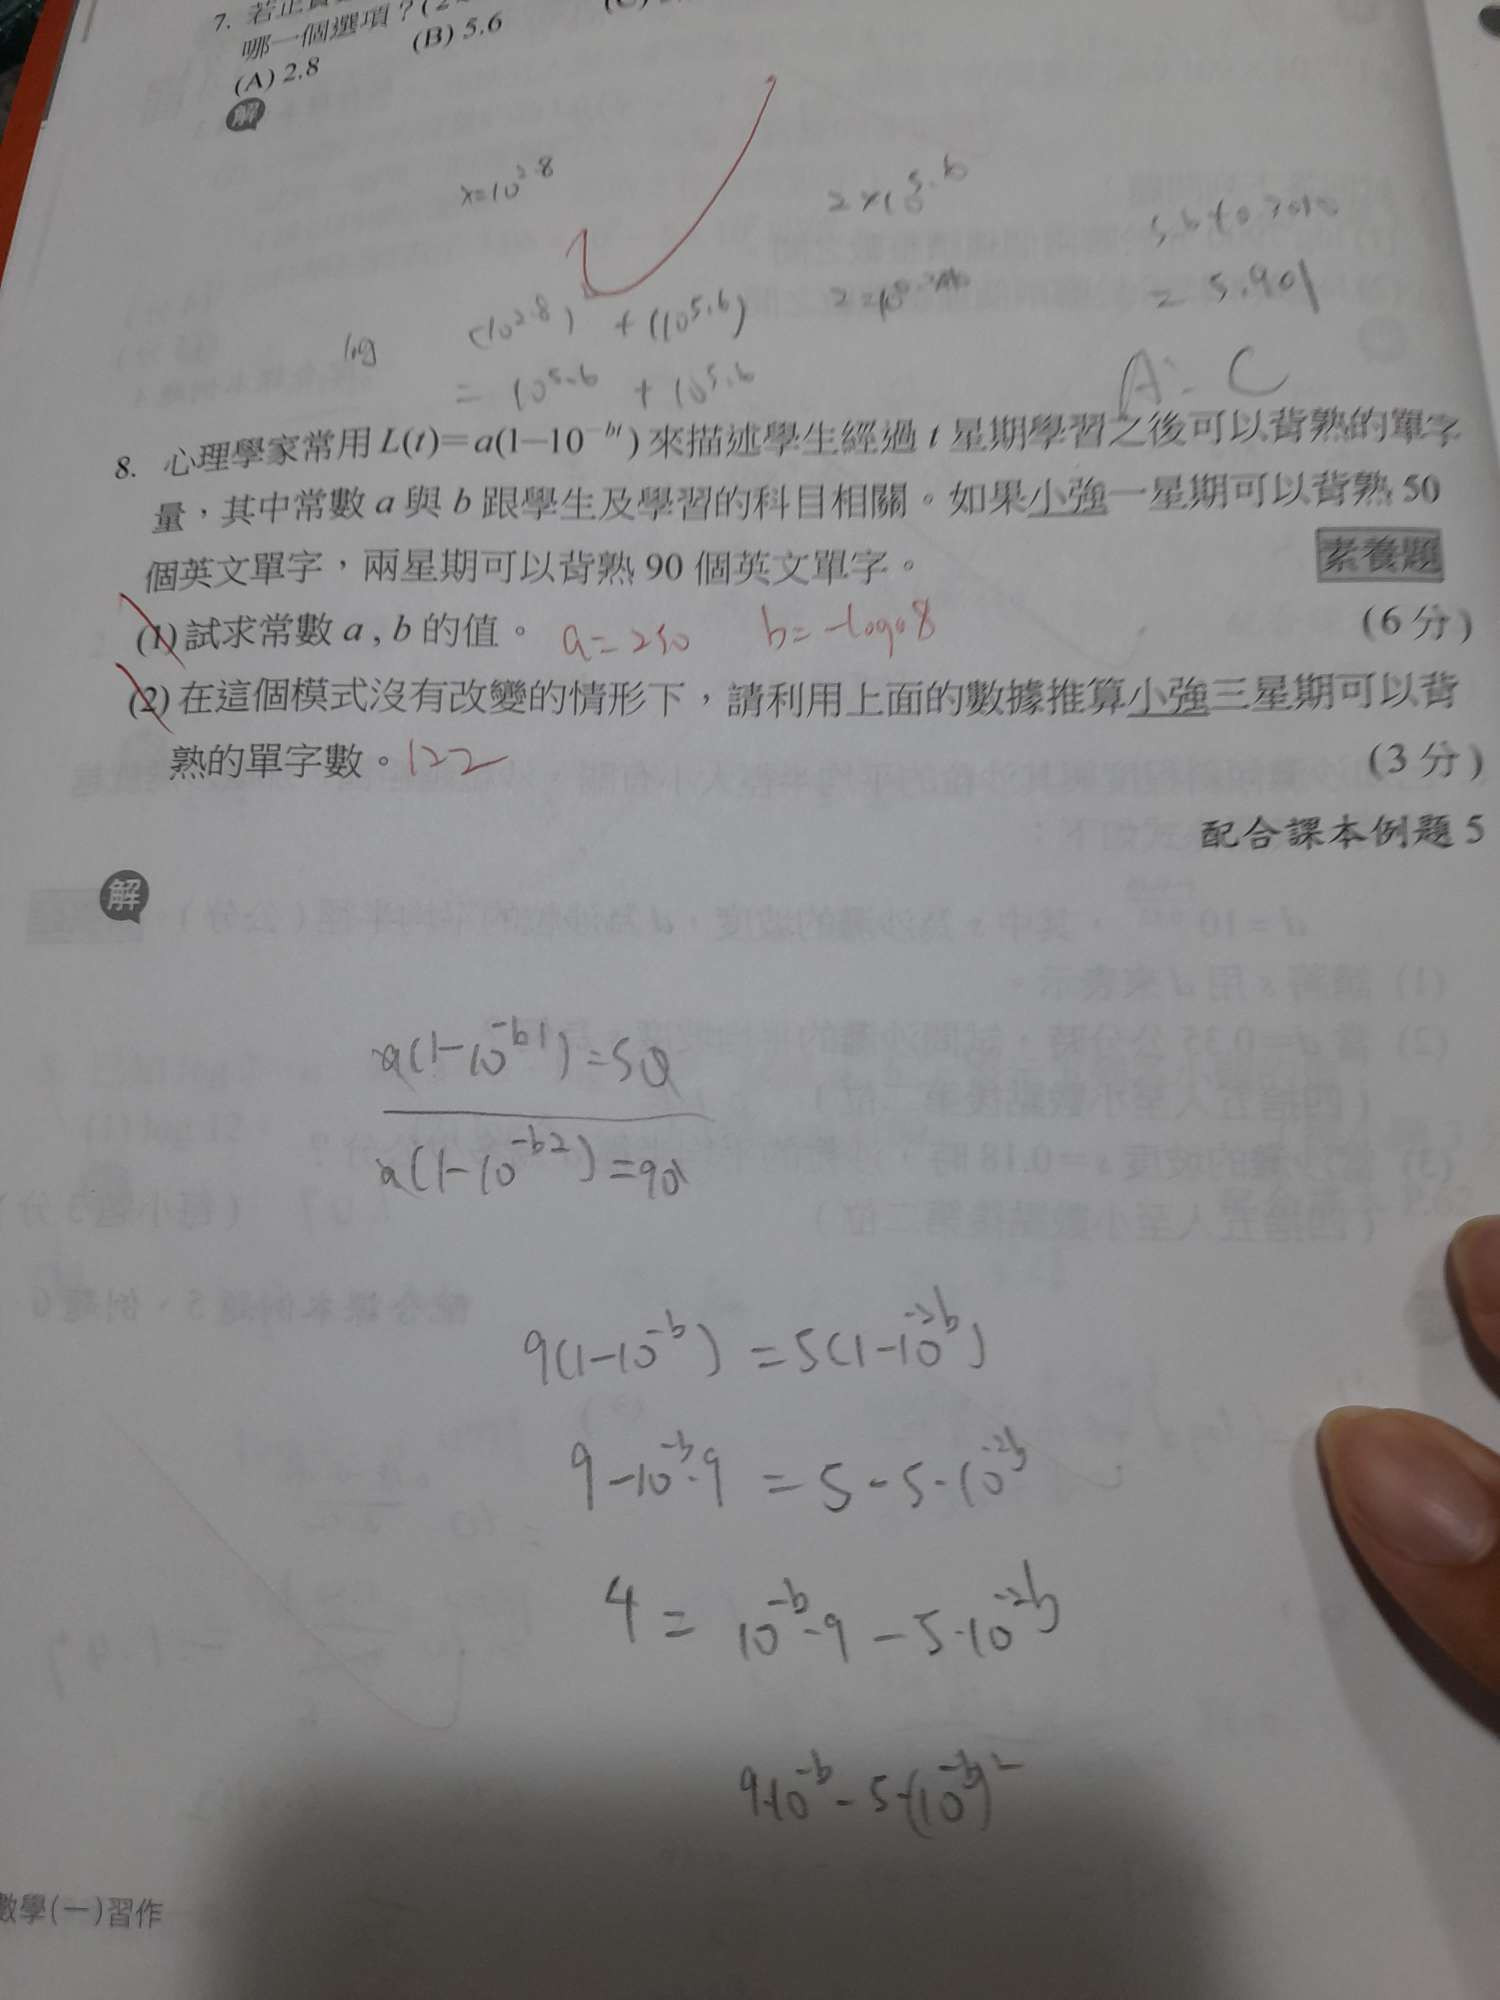 7. 若正
哪一個選項？(2
(A) 2.8
(B) 5.6
解
x=10^2.8
2×10^5.6
5.6+0.3010
= 5.901
log (10^2.8) + (10^5.6)
= 10^5.6 + 10^5.6
A: C
8. 心理學家常用 L(t)=a(1−10^−bt) 來描述學生經過 t 星期學習之後可以背熟的單字
量，其中常數 a 與 b 跟學生及學習的科目相關。如果小強一星期可以背熟 50
個英文單字，兩星期可以背熟 90 個英文單字。
素養題
(1) 試求常數 a , b 的值。 a=250 b=-log0.8
(6 分)
(2) 在這個模式沒有改變的情形下，請利用上面的數據推算小強三星期可以背
熟的單字數。122
(3 分)
配合課本例題 5
解
a(1-10^-b1)=50
a(1-10^-b2)=90
9(1-10^-b) = 5(1-10^-2b)
9-10^-b·9 = 5-5·10^-2b
4 = 10^-b·9 - 5·10^-2b
9·10^-b - 5·(10^-b)^2
數學(一)習作